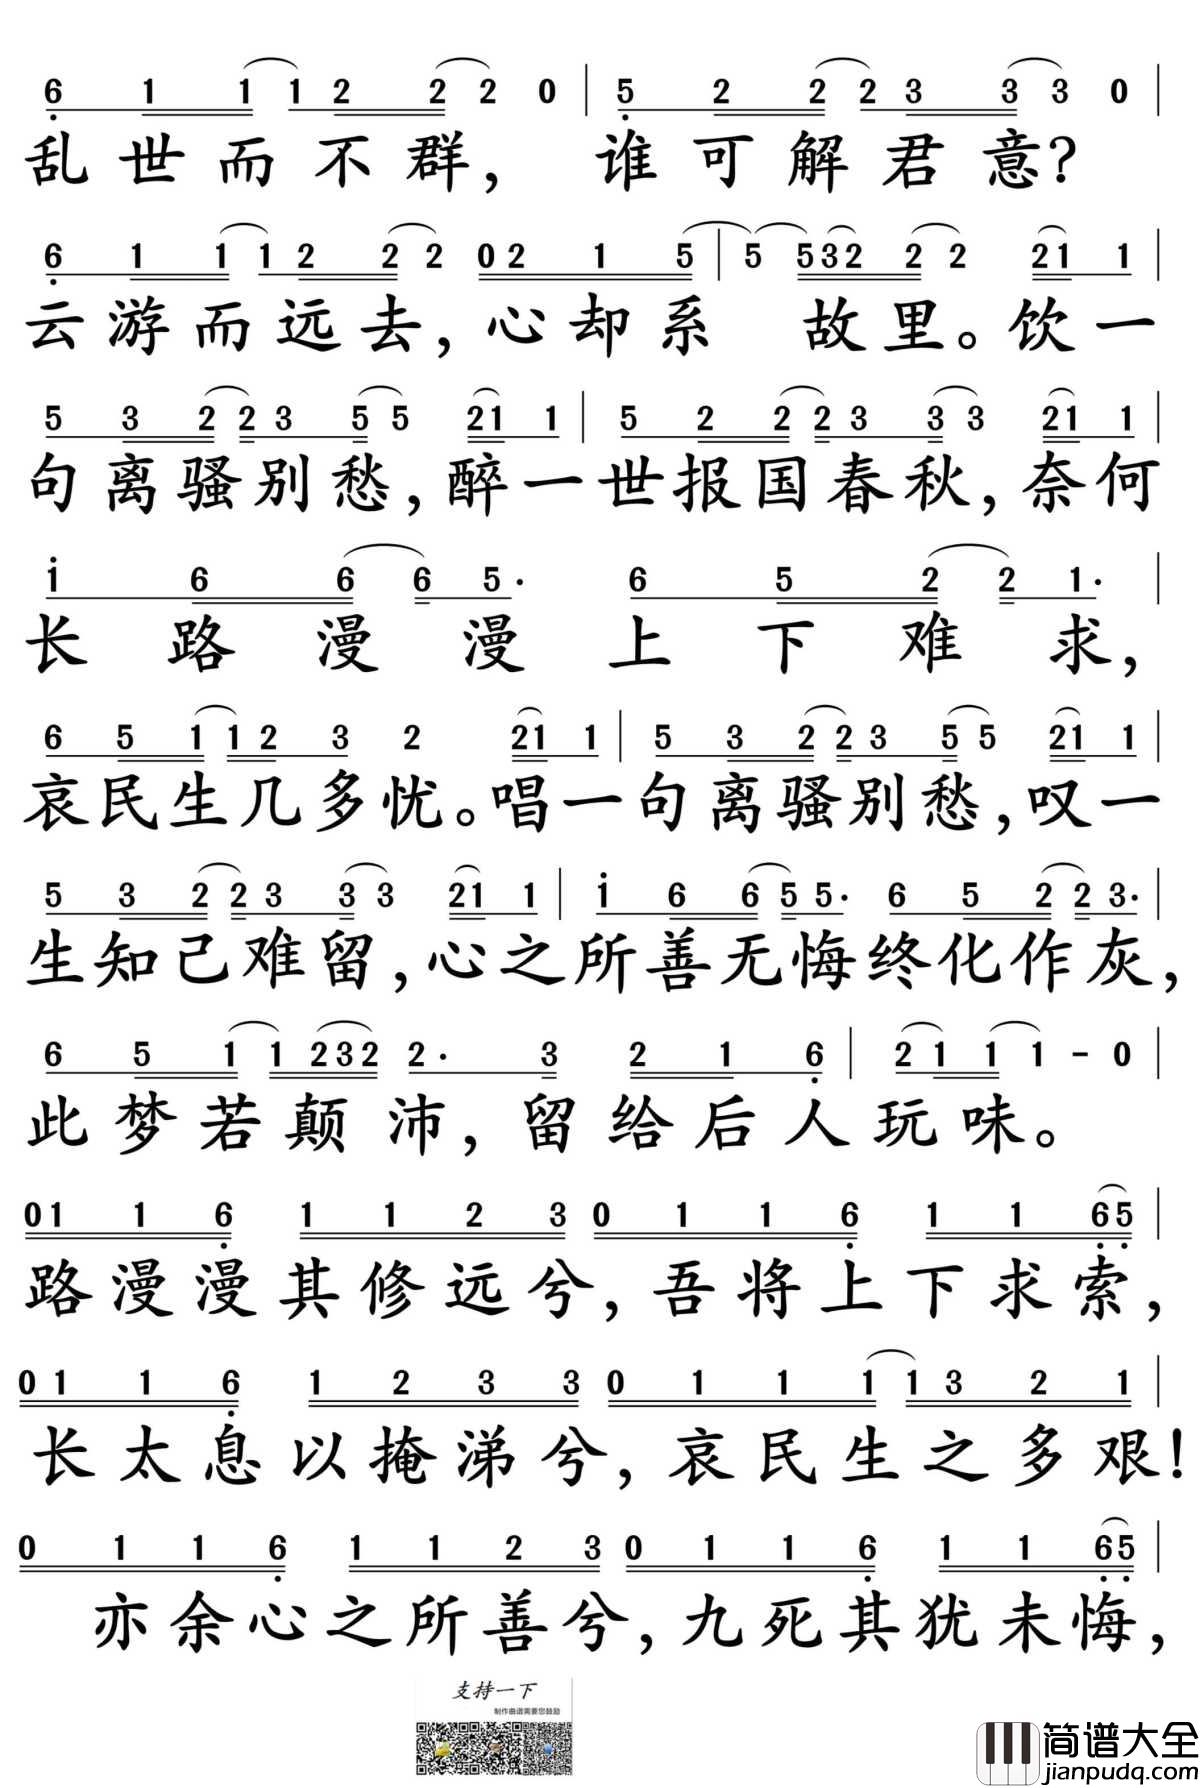 6 1 1 1 2 2 2 0 | 5 2 2 2 3 3 3 0 |
乱世而不群，谁可解君意？
6 1 1 1 2 2 2 0 2 1 5 | 5 5 3 2 2 2 2 1 1 |
云游而远去，心却系故里。饮一
5 3 2 2 3 5 5 2 1 1 | 5 2 2 2 3 3 3 2 1 1 |
句离骚别愁，醉一世报国春秋，奈何
1 6 6 6 5· 6 5 2 2 1· |
长路漫漫上下难求，
6 5 1 1 2 3 2 2 1 1 | 5 3 2 2 3 5 5 2 1 1 |
哀民生几多忧。唱一句离骚别愁，叹一
5 3 2 2 3 3 3 2 1 1 | 1 6 6 5 5· 6 5 2 2 3· |
生知己难留，心之所善无悔终化作灰，
6 5 1 1 2 3 2 2· 3 2 1 6 | 2 1 1 1 - 0 |
此梦若颠沛，留给后人玩味。
0 1 1 6 1 1 2 3 0 1 1 6 1 1 6 5 |
路漫漫其修远兮，吾将上下求索，
0 1 1 6 1 2 3 3 0 1 1 1 1 3 2 1 |
长太息以掩涕兮，哀民生之多艰！
0 1 1 6 1 1 2 3 0 1 1 6 1 1 6 5 |
亦余心之所善兮，九死其犹未悔，
支持一下
制作曲谱需要您鼓励
简谱大全
jianpudq.com